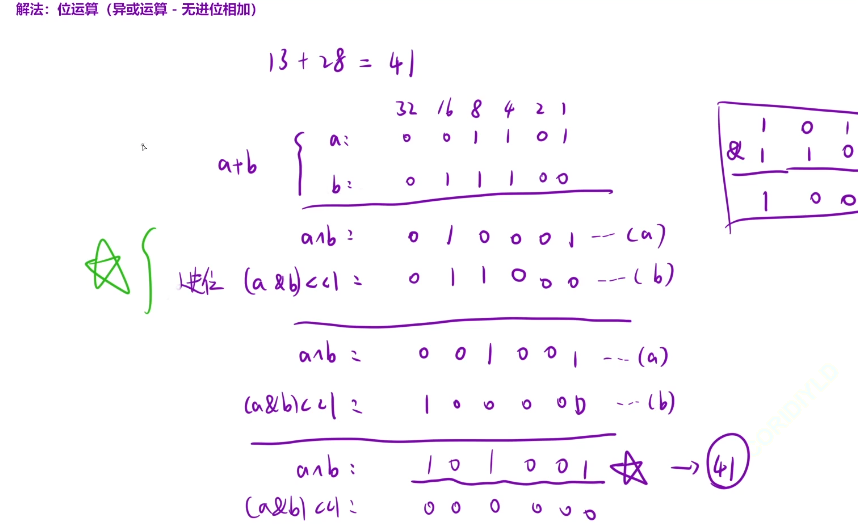 解法：位运算（异或运算 - 无进位相加）
13 + 28 = 41
32 16 8 4 2 1
a+b
a: 0 0 1 1 0 1
b: 0 1 1 1 0 0
a^b: 0 1 0 0 0 1 --- (a)
进位 (a&b)<<1: 0 1 1 0 0 0 --- (b)
a^b: 0 0 1 0 0 1 --- (a)
(a&b)<<1: 1 0 0 0 0 0 --- (b)
a^b: 1 0 1 0 0 1 → 41
(a&b)<<1: 0 0 0 0 0 0
1 0 1
& 1 1 0
1 0 0